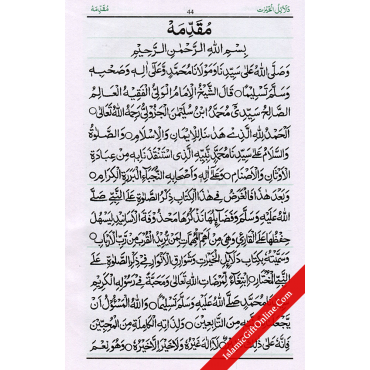 مُقَدِّمَه 44 دَلَائِلُ الْخَيْرَات
مُقَدِّمَه
بِسْمِ اللهِ الرَّحْمٰنِ الرَّحِيْمِ
وَصَلَّى اللهُ عَلٰى سَيِّدِنَا وَمَوْلَانَا مُحَمَّدٍ وَّعَلٰى اٰلِهٖ وَصَحْبِهٖ
وَسَلَّمَ تَسْلِيْمًا ۞ قَالَ الشَّيْخُ الْاِمَامُ الْوَلِيُّ الْفَقِيْهُ الْعَالِمُ
الصَّالِحُ سَيِّدِيْ مُحَمَّدُ ابْنُ سُلَيْمٰنَ الْجَزُوْلِيُّ رَحِمَهُ اللهُ تَعَالٰى
اَلْحَمْدُ لِلّٰهِ الَّذِيْ هَدَانَا لِلْاِيْمَانِ وَالْاِسْلَامِ ۞ وَالصَّلٰوةُ
وَالسَّلَامُ عَلٰى سَيِّدِنَا مُحَمَّدٍ نَّبِيِّهِ الَّذِي اسْتَنْقَذَنَا بِهٖ مِنْ عِبَادَةِ
الْاَوْثَانِ وَالْاَصْنَامِ ۞ وَعَلٰى اٰلِهٖ وَاَصْحَابِهِ النُّجَبَاءِ الْبَرَرَةِ الْكِرَامِ ۞
وَبَعْدَ هٰذَا فَالْغَرَضُ فِيْ هٰذَا الْكِتَابِ ذِكْرُ الصَّلٰوةِ عَلَى النَّبِيِّ صَلَّى
اللهُ عَلَيْهِ وَسَلَّمَ وَفَضَآئِلِهَا نَذْكُرُهَا مَحْذُوْفَةَ الْاَسَانِيْدِ لِيَسْهُلَ
حِفْظُهَا عَلَى الْقَارِئِ وَهِيَ مِنْ اَهَمِّ الْمُهِمَّاتِ لِمَنْ يُّرِيْدُ الْقُرْبَ مِنْ رَّبِّ الْاَرْبَابِ
وَسَمَّيْتُهٗ بِكِتَابِ دَلَآئِلِ الْخَيْرَاتِ وَشَوَارِقِ الْاَنْوَارِ فِيْ ذِكْرِ الصَّلٰوةِ عَلَى
النَّبِيِّ الْمُخْتَارِ ۞ ابْتِغَآءً لِّمَرْضَاتِ اللهِ تَعَالٰى وَمَحَبَّةً فِيْ رَسُوْلِهِ الْكَرِيْمِ
مُحَمَّدٍ صَلَّى اللهُ عَلَيْهِ وَسَلَّمَ تَسْلِيْمًا ۞ وَاللهُ الْمَسْئُوْلُ اَنْ
يَّجْعَلَنَا مِنَ التَّابِعِيْنَ ۞ وَلِذَاتِهِ الْكَامِلَةِ مِنَ الْمُحِبِّيْنَ
فَاِنَّهٗ عَلٰى ذٰلِكَ لَا اِلٰهَ غَيْرُهٗ وَلَا خَيْرَ اِلَّا خَيْرُهٗ ۞ وَهُوَ نِعْمَ
IslamicGiftOnline.Com